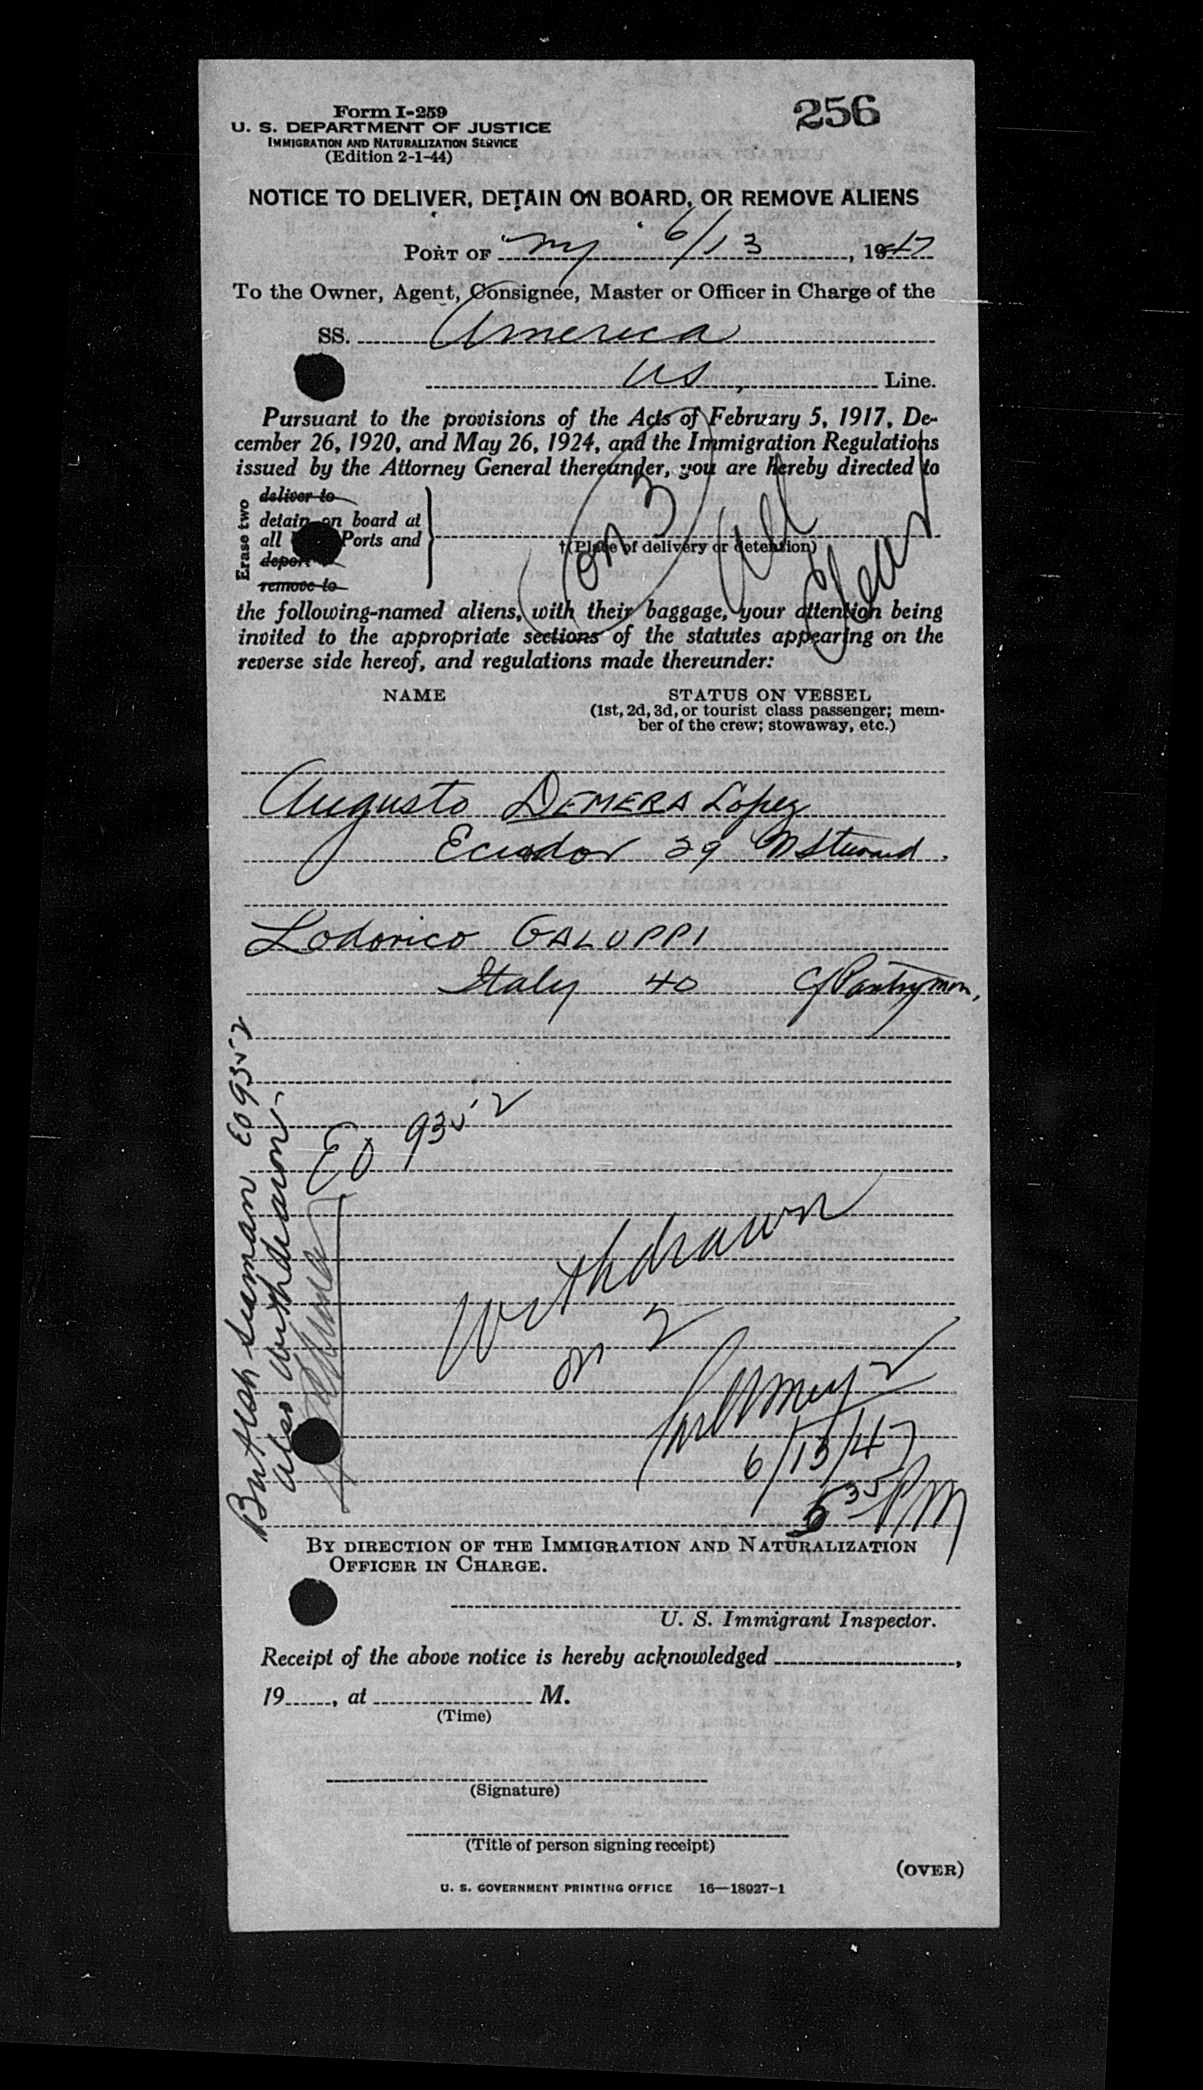 256
Form I-259
U. S. DEPARTMENT OF JUSTICE
IMMIGRATION AND NATURALIZATION SERVICE
(Edition 2-1-44)
NOTICE TO DELIVER, DETAIN ON BOARD, OR REMOVE ALIENS
PORT OF NY 6/13, 1947
To the Owner, Agent, Consignee, Master or Officer in Charge of the
SS. America
US Line.
Pursuant to the provisions of the Acts of February 5, 1917, De-
cember 26, 1920, and May 26, 1924, and the Immigration Regulations
issued by the Attorney General thereunder, you are hereby directed to
Erase two
deliver to
detain on board at
all Ports and
deport
remove to
on 3
†(Place of delivery or detention)
the following-named aliens, with their baggage, your attention being
invited to the appropriate sections of the statutes appearing on the
reverse side hereof, and regulations made thereunder:
NAME STATUS ON VESSEL
(1st, 2d, 3d, or tourist class passenger; mem-
ber of the crew; stowaway, etc.)
Augusto DEMERA Lopez
Ecuador 29 Steward.
Lodovico GALUPPI
Italy 40 Pantryman,
EO 9352
British Seaman EO 9352
also withdrawn
Withdrawn
on 2
6/13/47
5 35 PM
BY DIRECTION OF THE IMMIGRATION AND NATURALIZATION
OFFICER IN CHARGE.
U. S. Immigrant Inspector.
Receipt of the above notice is hereby acknowledged ,
19 , at M.
(Time)
(Signature)
(Title of person signing receipt)
(OVER)
U. S. GOVERNMENT PRINTING OFFICE 16—18027-1